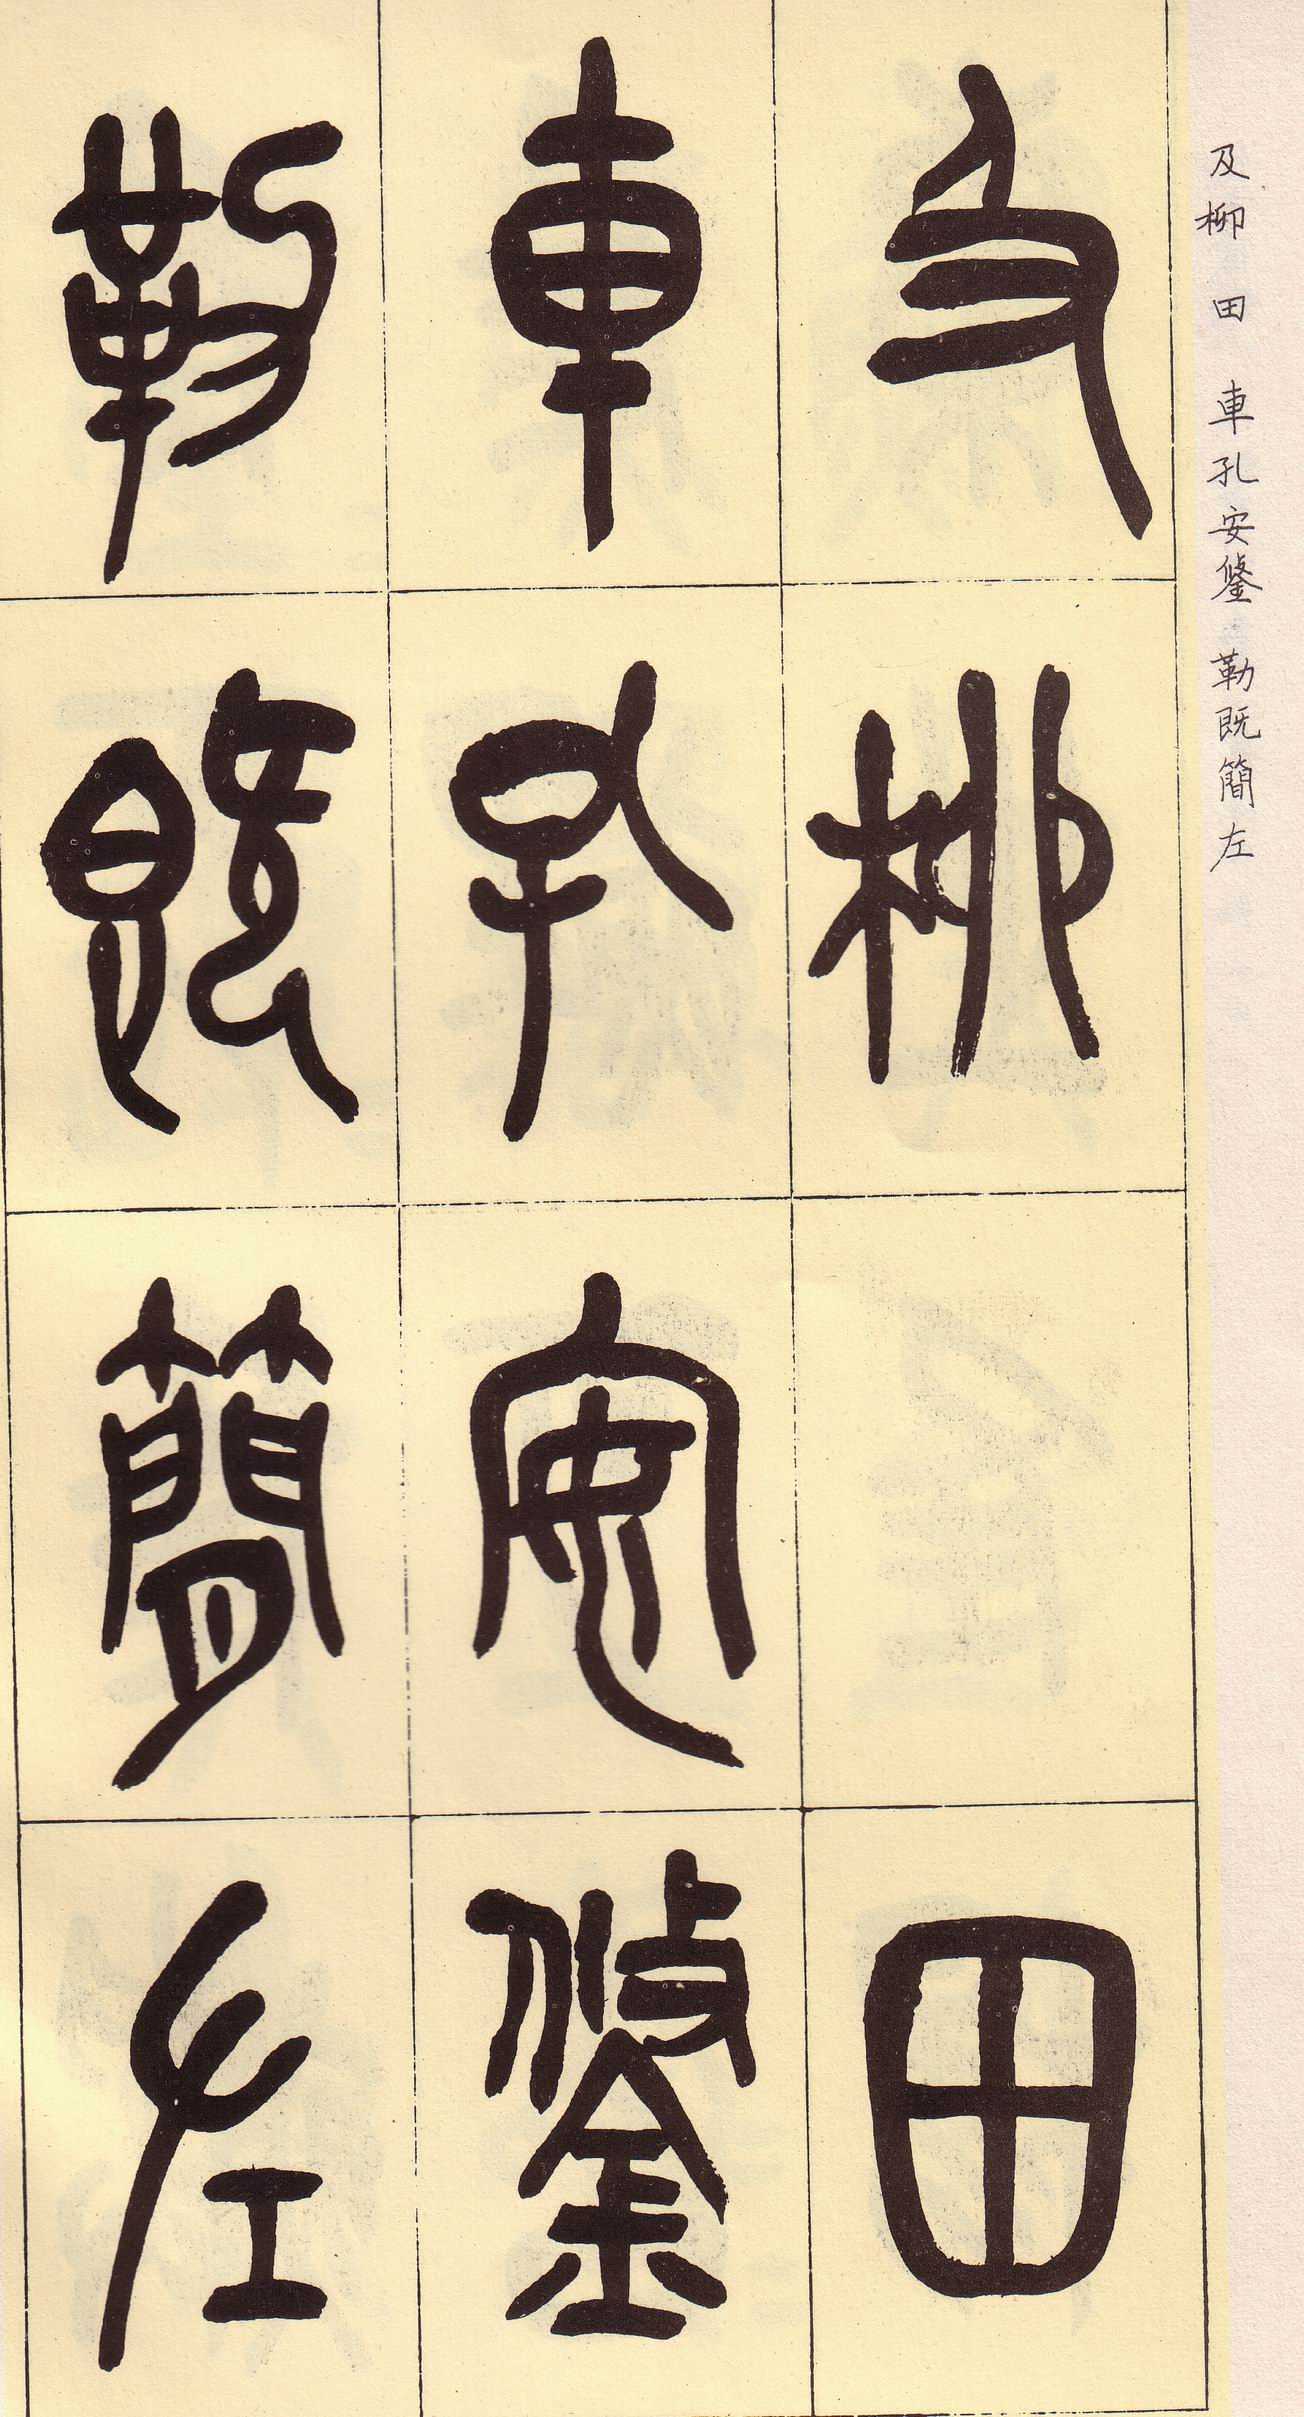 及柳田車孔安鋚勒既簡左
及柳
田
車孔安鋚
勒既簡左